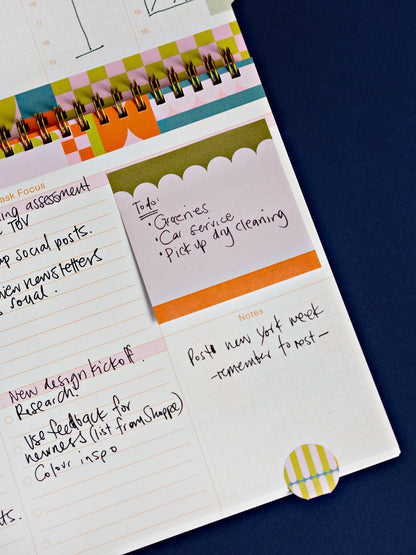 15
16
15
16
17
18
ask Focus
ing assessment
TOV
up social posts.
newsletters
social.
New design kickoff.
Research.
Use feedback for
newness (list from Shoppe)
Colour inspo
ts.
To do:
• Groceries
• Car service
• Pick up dry cleaning
Notes
Posts new york week
- remember to post -